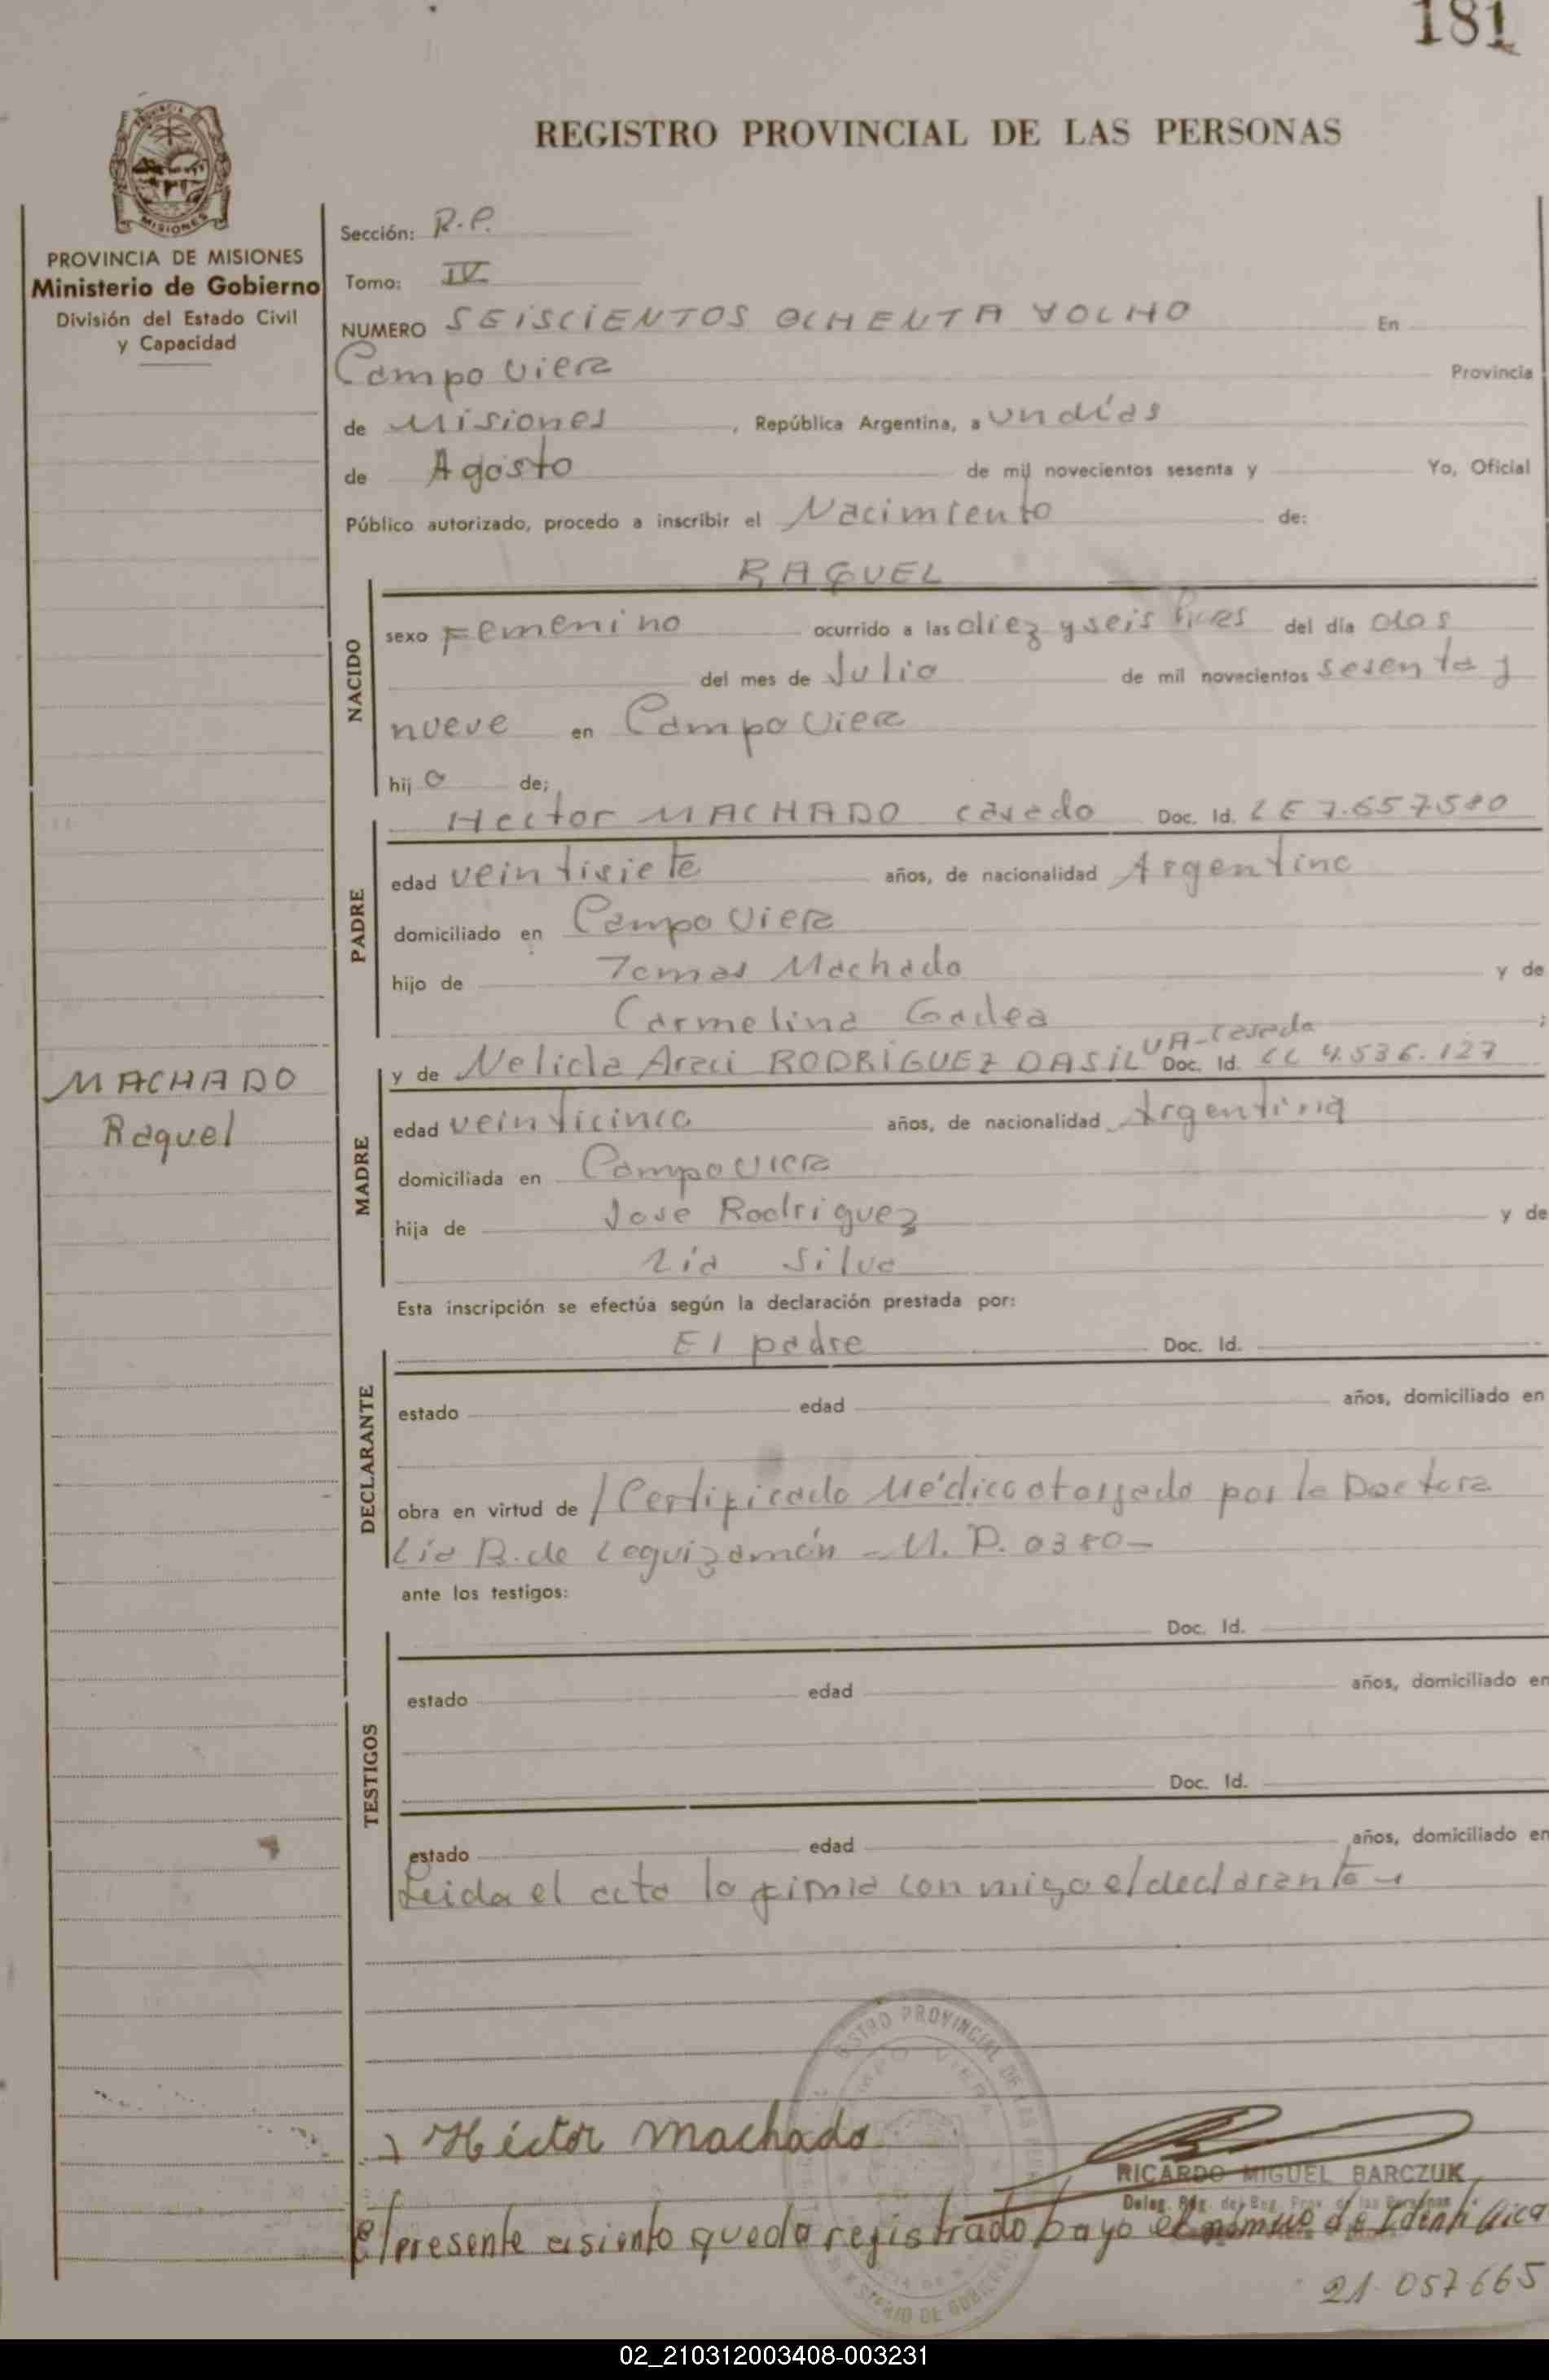 181
REGISTRO PROVINCIAL DE LAS PERSONAS
MISIONES
PROVINCIA DE MISIONES
Ministerio de Gobierno
División del Estado Civil
y Capacidad
Sección: R.P.
Tomo: IV
NUMERO SEISCIENTOS OCHENTA YOCHO En
Campo Viera Provincia
de Misiones, República Argentina, a un días
de Agosto de mil novecientos sesenta y Yo, Oficial
Público autorizado, procedo a inscribir el Nacimiento de:
NACIDO
RAQUEL
sexo Femenino ocurrido a las diez y seis horas del día dos
del mes de Julio de mil novecientos sesenta y
nueve en Campo Viera
hij a de;
PADRE
Hector MACHADO casado Doc. Id. LE 7.657.580
edad veintisiete años, de nacionalidad Argentina
domiciliado en Campo Viera
hijo de Tomas Machado y de
Carmelina Gadea ;
MACHADO
Raquel
MADRE
y de Nelida Araci RODRIGUEZ DASILVA-casada Doc. Id. LC 4.536.127
edad veinticinco años, de nacionalidad Argentina
domiciliada en Campo Viera
hija de Jose Rodriguez y de
Lia Silva
Esta inscripción se efectúa según la declaración prestada por:
DECLARANTE
El padre Doc. Id.
estado edad años, domiciliado en
obra en virtud de / Certificado Médico otorgado por la Doctora
Lia B. de Leguizamón - M. P. 0380-
ante los testigos:
TESTIGOS
Doc. Id.
estado edad años, domiciliado en
Doc. Id.
estado edad años, domiciliado en
Leida el acta la firma con migo el declarante
Héctor Machado
RICARDO MIGUEL BARCZUK
El presente asiento queda registrado bayo el de Identifica
21.057.665
02_210312003408-003231